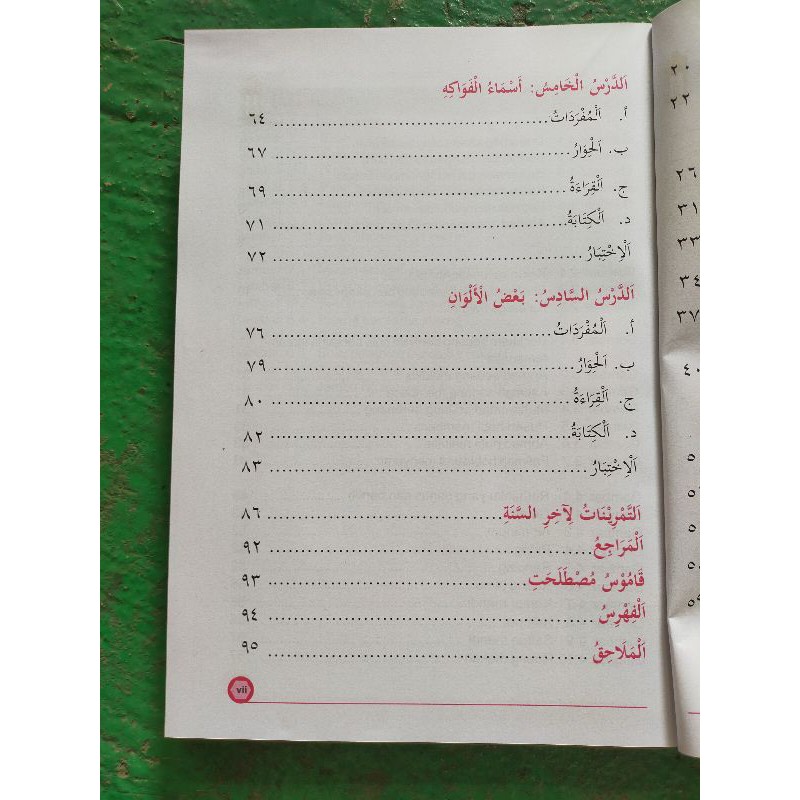 اَلدَّرْسُ الْخَامِسُ: أَسْمَاءُ الْفَوَاكِهِ
أ. اَلْمُفْرَدَاتُ ........ ٦٤
ب. اَلْحِوَارُ ........ ٦٧
ج. اَلْقِرَاءَةُ ........ ٦٩
د. اَلْكِتَابَةُ ........ ٧١
اَلْاِخْتِبَارُ ........ ٧٢
اَلدَّرْسُ السَّادِسُ: بَعْضُ الْأَلْوَانِ
أ. اَلْمُفْرَدَاتُ ........ ٧٦
ب. اَلْحِوَارُ ........ ٧٩
ج. اَلْقِرَاءَةُ ........ ٨٠
د. اَلْكِتَابَةُ ........ ٨٢
اَلْاِخْتِبَارُ ........ ٨٣
اَلتَّمْرِيْنَاتُ لِآخِرِ السَّنَةِ ........ ٨٦
اَلْمَرَاجِعُ ........ ٩٢
قَامُوْسُ مُصْطَلَحَتِ ........ ٩٣
اَلْفِهْرِسُ ........ ٩٤
اَلْمَلَاحِقُ ........ ٩٥
vii
٢٠
٢٢
٢٦
٣١
٣٣
٣٤
٣٧
٤٠